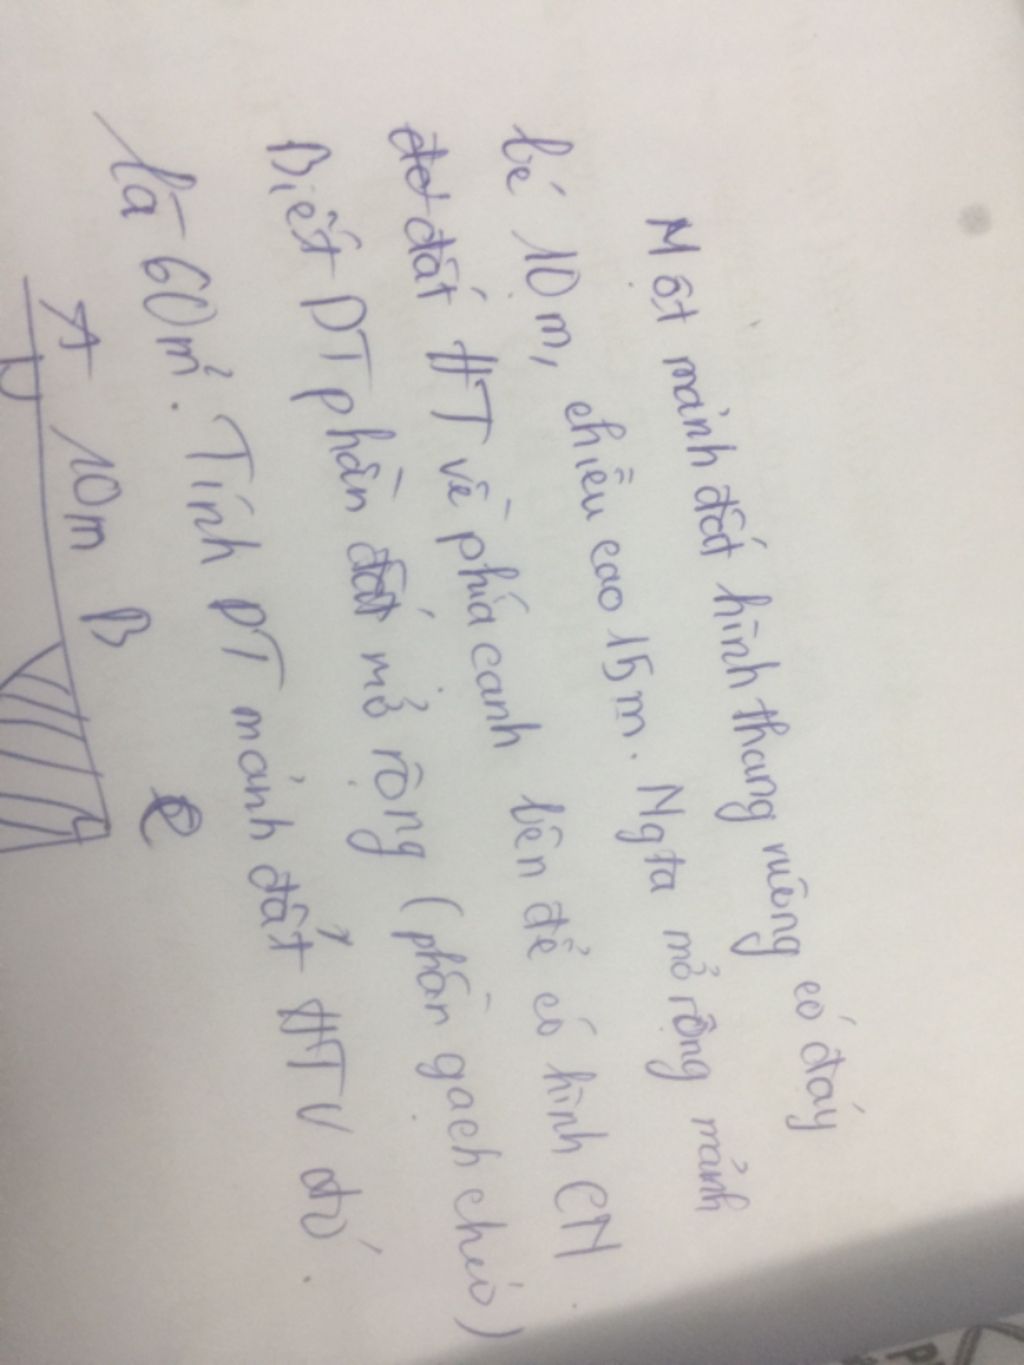 Một mảnh đất hình thang vuông có đáy
bé 10m, chiều cao 15m. Ng ta mở rộng mảnh
đất HT về phía cạnh bên để có hình CN.
Biết DT phần đất mở rộng (phần gạch chéo)
là 60m². Tính DT mảnh đất HTV đó.
A 10m B E